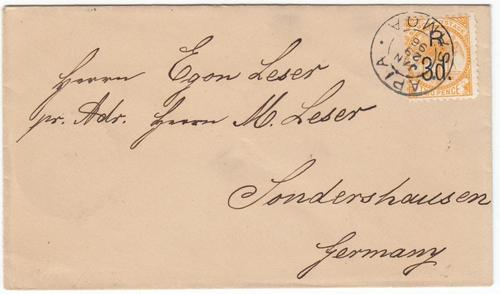 R
3d.
APIA
SAMOA
JAN
29
96
PENCE
Herrn Egon Leser
pr. Adr. Herrn M. Leser
Sondershausen
Germany